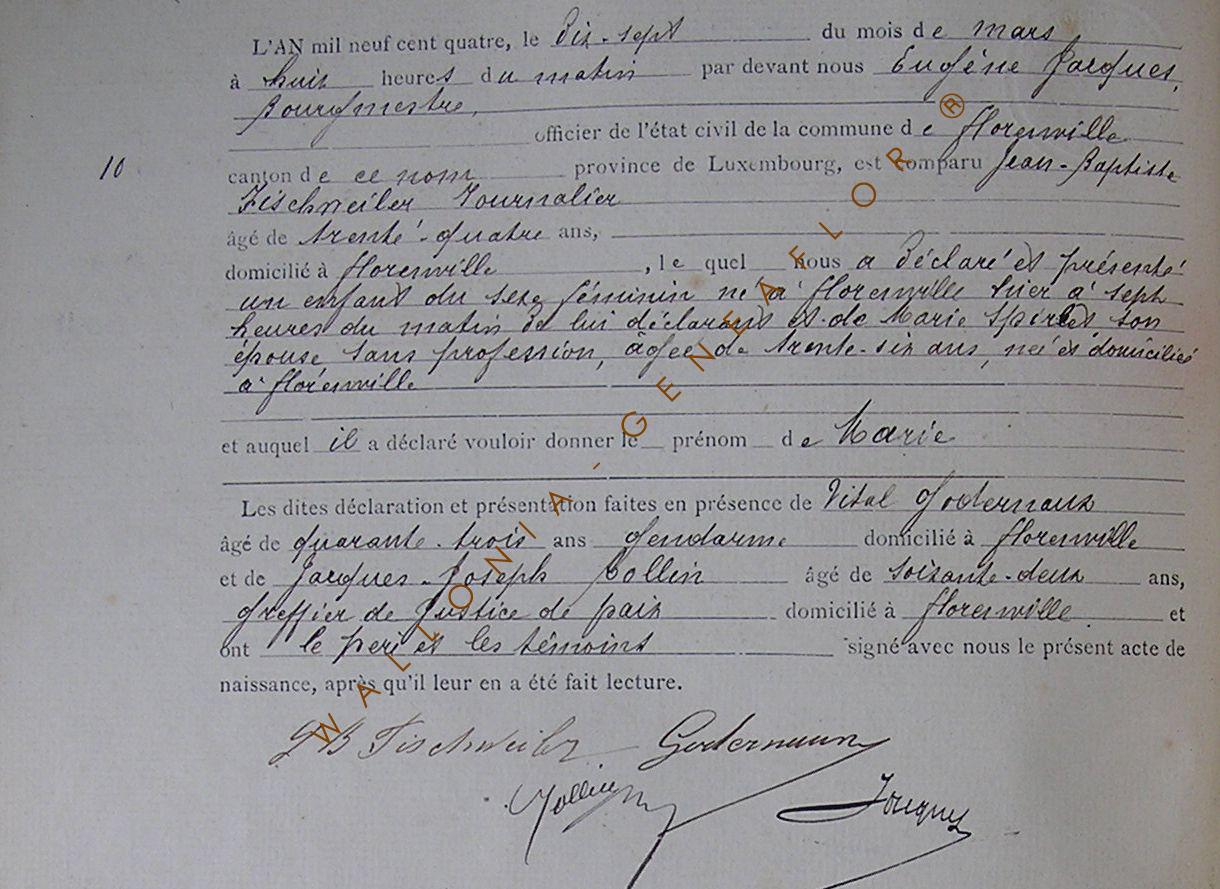 L'AN mil neuf cent quatre, le Dix-sept du mois de mars
à huit heures du matin par devant nous Eugène Jacques,
Bourgmestre,
officier de l'état civil de la commune de Florenville
10
canton de ce nom province de Luxembourg, est comparu Jean-Baptiste
Fischweiler Journalier
âgé de trente-quatre ans,
domicilié à Florenville, le quel nous a Déclaré et présenté
un enfant du sexe féminin né à Florenville hier à sept
heures du matin de lui déclarant et de Marie son
épouse sans profession, âgée de trente-six ans, née et domiciliée
à Florenville
et auquel il a déclaré vouloir donner le prénom de Marie
Les dites déclaration et présentation faites en présence de Vital Godernaux
âgé de quarante-trois ans Gendarme domicilié à Florenville
et de Jacques-Joseph Collin âgé de soixante-deux ans,
Greffier de Justice de paix domicilié à Florenville et
ont le père et les témoins signé avec nous le présent acte de
naissance, après qu'il leur en a été fait lecture.
JB Fischweiler Godernaux
Collin Jacques
WALLONIA-GENEAFLOR®